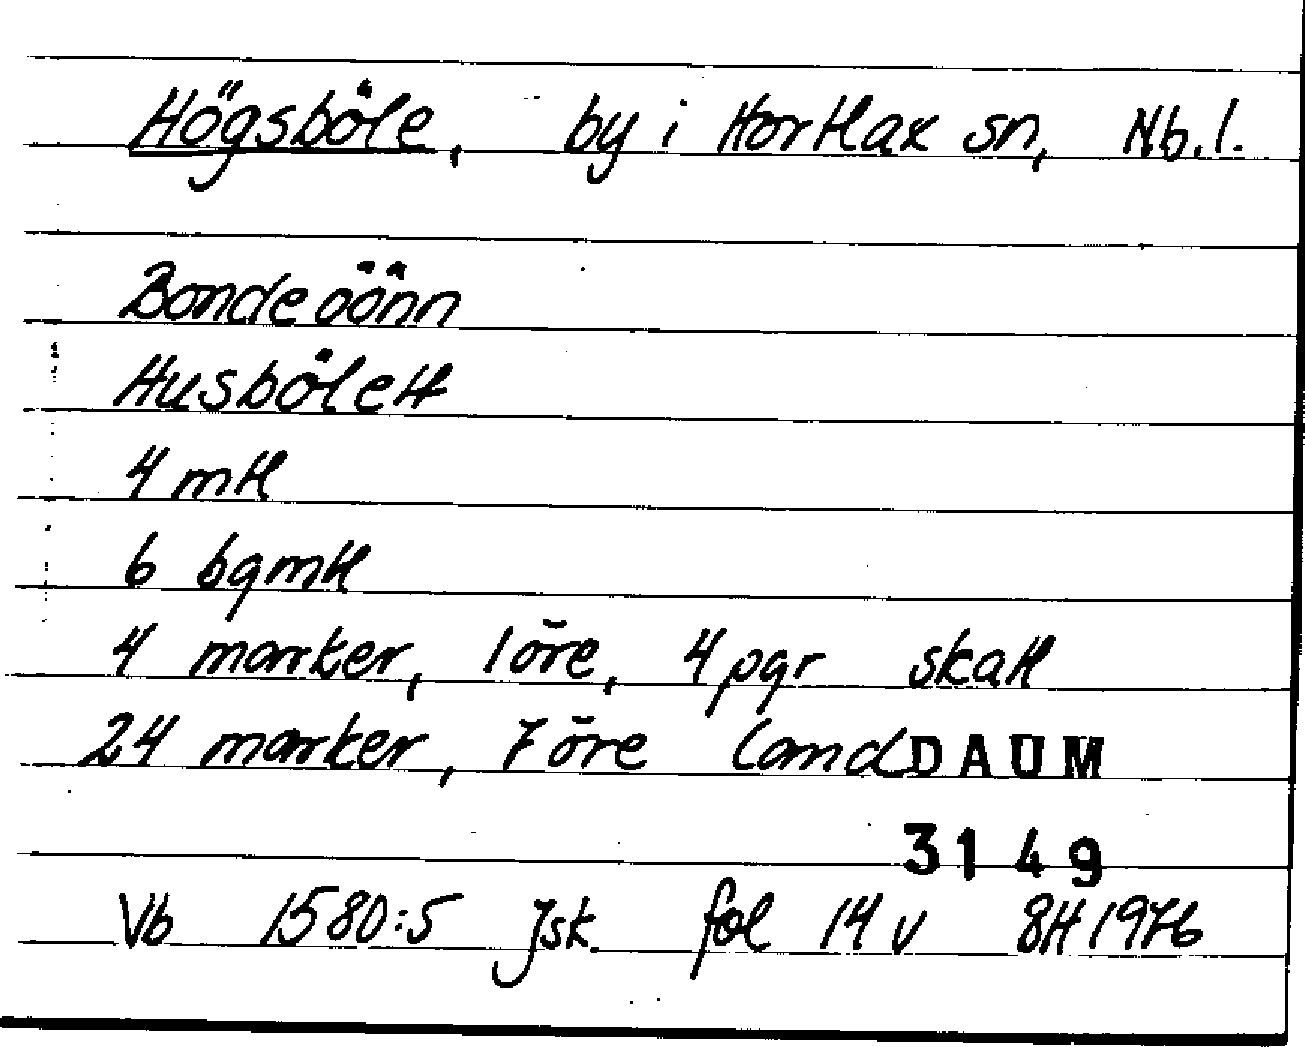 Högsböle, by i Hortlax sn, Nb. l.
Bondeöönn
Husbölett
4 mtl
6 bgmtl
4 marker, 1 öre, 4 pgr skatt
24 marker, 7 öre land DAUM
3149
Vb 1580:5 Jsk. fol 14 v BH 1976